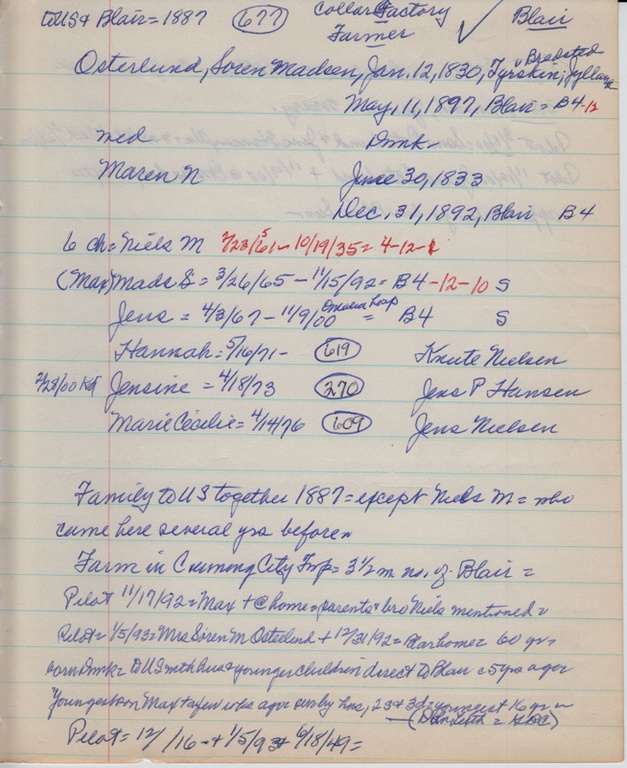 to US & Blair = 1887 (677) Collar Factory ✓ Blair
Farmer
Osterlund, Soren Madsen, Jan. 12, 1830, Tyrskin, Bredsted Jylland
May, 11, 1897, Blair = B4-12
med Dmk-
Maren N June 30, 1833
Dec. 31, 1892, Blair B4
6 ch = Niels M 2/23/61 - 10/19/35 = 4-12-1
(Max) Mads S = 3/26/65 - 11/15/92 = B4-12-10 S
Jens = 4/3/67 - 11/9/00 Omaha Hosp = B4 S
Hannah = 5/16/71 - (619) Knute Nielsen
2/28/00 Jensine = 4/18/73 (270) Jens P Hansen
Marie Cecilie = 4/14/76 (609) Jens Nielsen
Family to US together 1887 = except Niels M = who
came here several yrs before
Farm in Cuming City Twp = 3 1/2 m no. of Blair =
Pilot 11/17/92 = Max + @ home = parents & bro Niels mentioned =
Pilot = 1/5/93 = Mrs Soren M Osterlund + 12/31/92 = Blair home = 60 yrs
born Dmk = to US with hus & younger children direct to Blair = 5 yrs ago =
Youngest son Max + a few wks ago surv by hus, 2 s & 3 d = youngest 16 yrs
(Dan Luth = )
Pilot = 12/ /16 - + 1/5/93 + 6/18/49 =